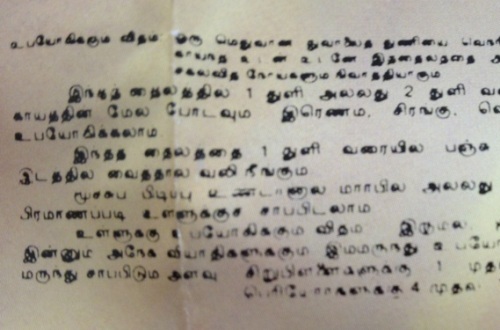 உபயோகிக்கும் விதம் ஒரு மெதுவான துவாலைத் துணியை
காய்ந்த உடன் உடனே இத்தைலத்தை
சகலவித நோய்களும் நிவர்த்தியாகும்
இந்தத் தைலத்தில் 1 துளி அல்லது 2 துளி
காயத்தின் மேல் போடவும் இரணம், சிரங்கு,
உபயோகிக்கலாம்
இந்தத் தைலத்தை 1 துளி வரையில் பஞ்சு
இடத்தில் வைத்தால் வலி நீங்கும்
மூச்சுப் பிடிப்பு உண்டானால் மார்பில் அல்லது
பிரமாணப்படி உள்ளுக்குச் சாப்பிடலாம்
உள்ளுக்கு உபயோகிக்கும் விதம் இருமல்,
இன்னும் அநேக வியாதிகளுக்கும் இம்மருந்து
மருந்து சாப்பிடும் அளவு சிறுபிள்ளைகளுக்கு 1
பெரியோர்களுக்கு 4 முதல்